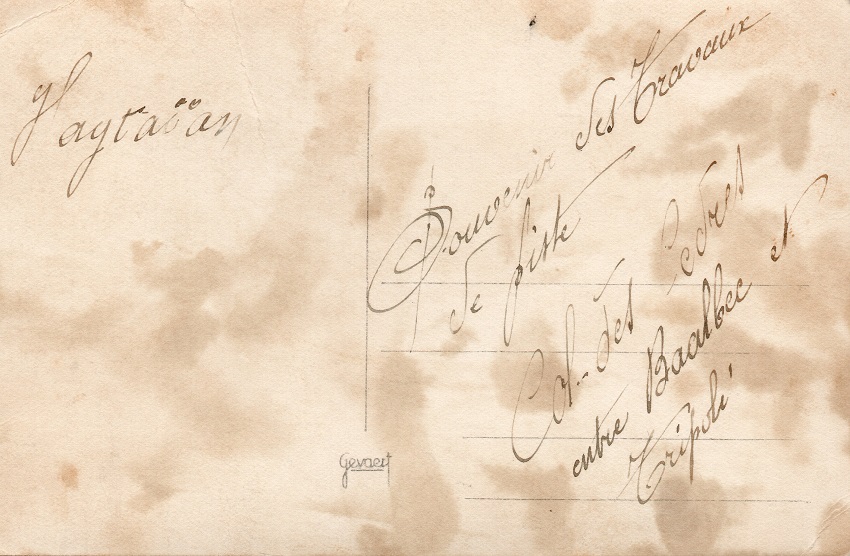 Haytaïan
Souvenir des Travaux
de piste
Col-des Cedres
entre Baalbec et
Tripoli
Gevaert